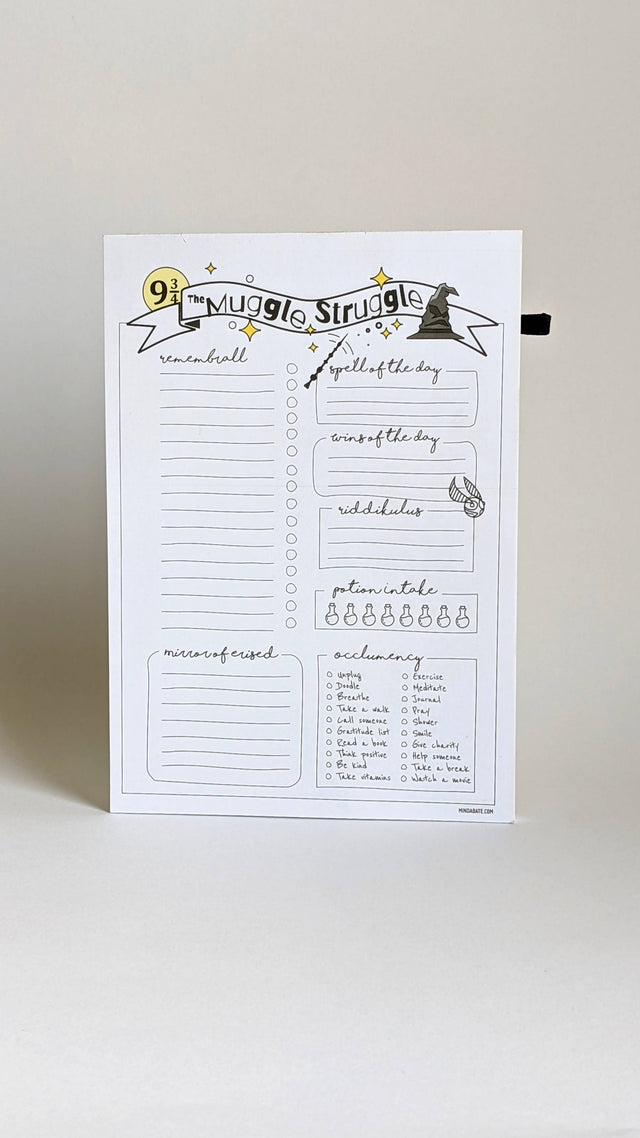 9 3/4
The Muggle Struggle
remembrall
spell of the day
wins of the day
riddikulus
potion intake
mirror of erised
occlumency
Unplug
Doodle
Breathe
Take a walk
Call someone
Gratitude list
Read a book
Think positive
Be kind
Take vitamins
Exercise
Meditate
Journal
Pray
Shower
Smile
Give charity
Help someone
Take a break
Watch a movie
MINDABATE.COM